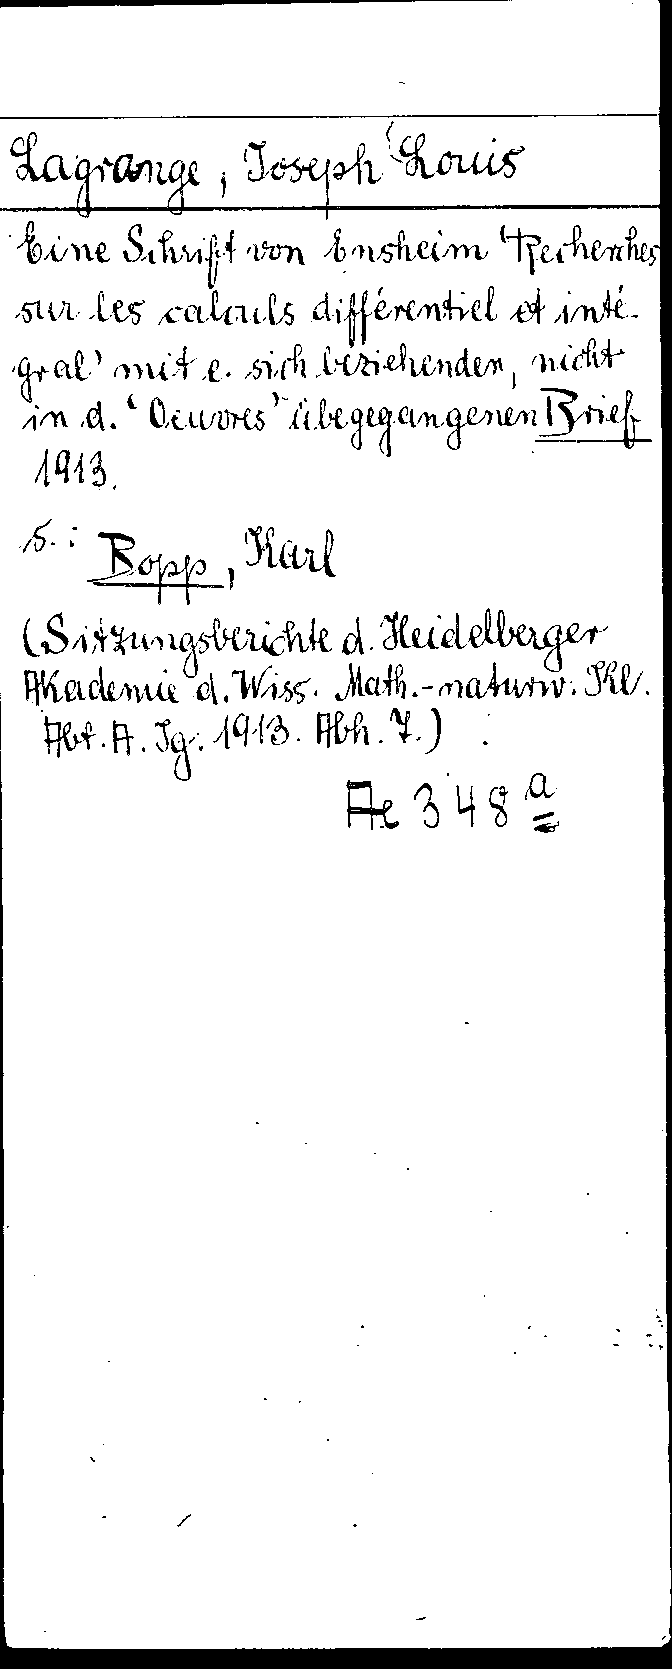 Lagrange, Joseph Louis
Eine Schrift von Ensheim 'Recherches
sur les calculs différentiel et inté-
gral' mit e. sich beziehenden, nicht
in d. 'Oeuvres' übegegangenen Brief
1913.
s.: Bopp, Karl
(Sitzungsberichte d. Heidelberger
Akademie d. Wiss. Math.-naturw. Kl.
Abt. A. Jg. 1913. Abh. 7.)
Ae 348 a